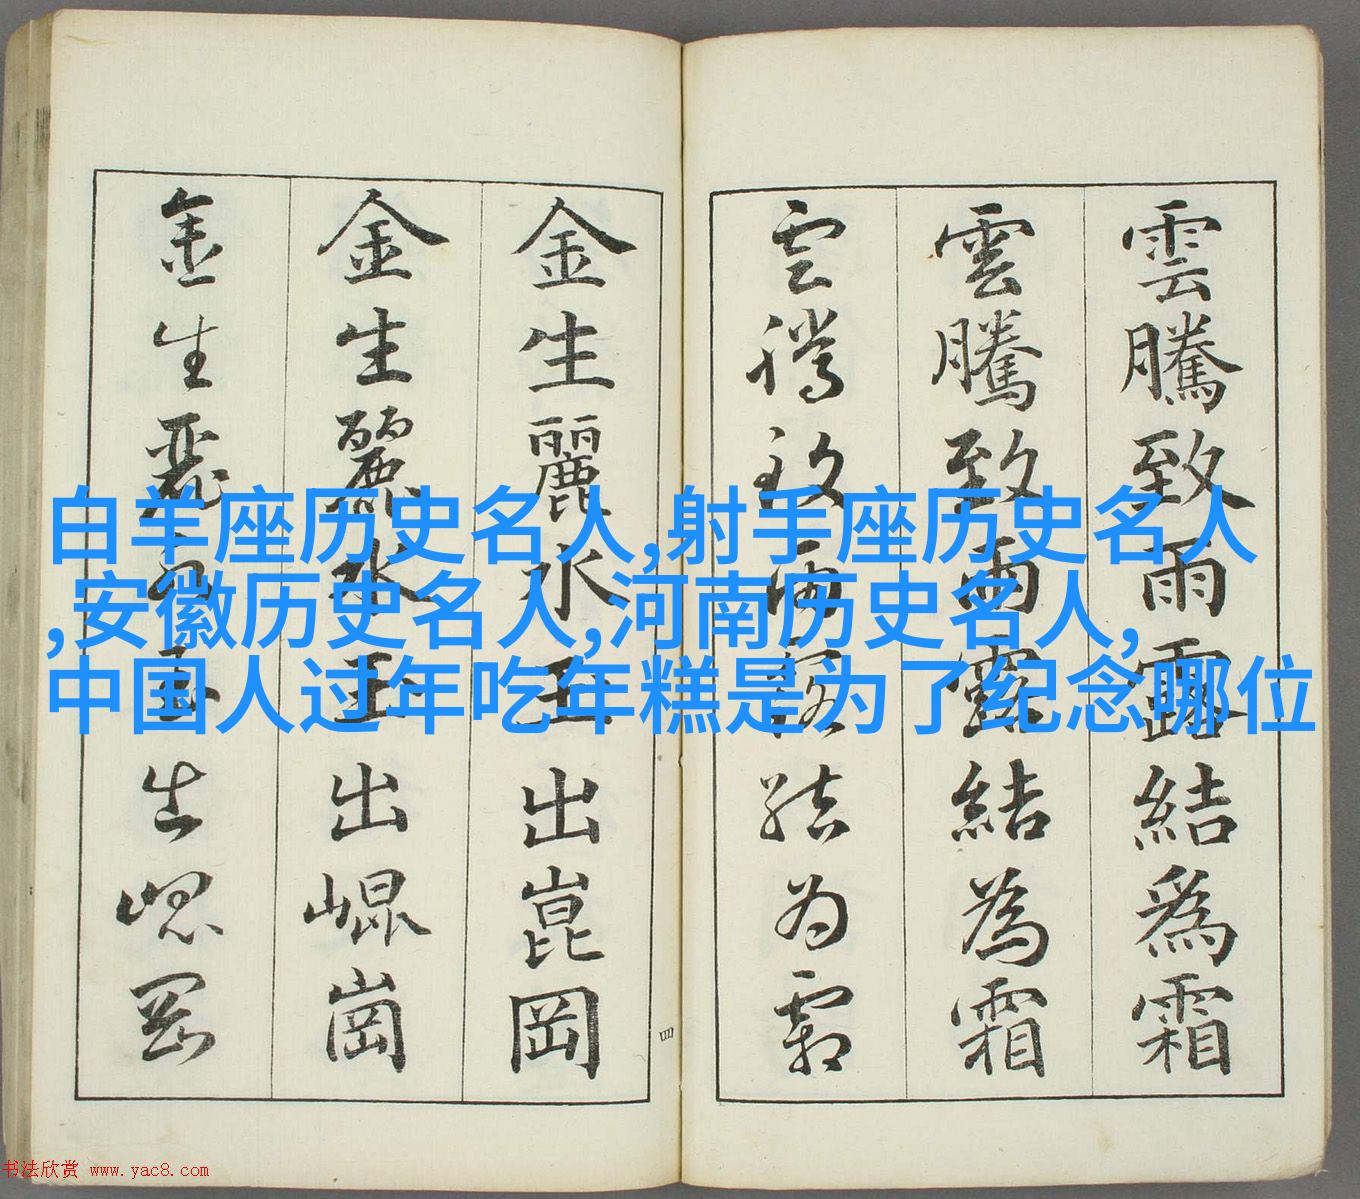 白羊座历史名人,射手座历史名人
,安徽历史名人,河南历史名人,
中国人过年吃年糕是为了纪念哪位
雲騰致雨露結爲霜
雲騰致雨露結為霜
雲騰致雨露結为霜
金生麗水玉出崑岡
金生麗水玉出崐崗
金生麗水玉出崐岡
四
书法欣赏 www.yac8.com